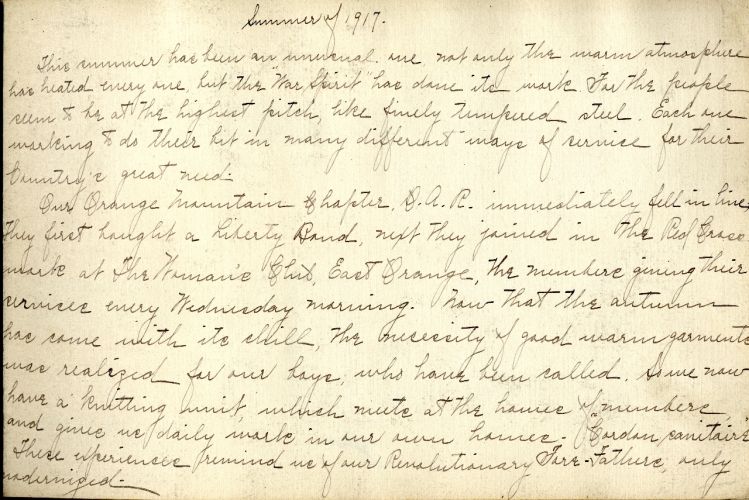 Summer of 1917.
This summer has been an unusual one, not only the warm atmosphere
has heated every one, but the "War Spirit" has done its work. For the people
seem to be at the highest pitch, like finely tempered steel. Each one
working to do their bit in many different ways of service for their
Country's great need.
Our Orange Mountain Chapter, D.A.R. immediately fell in line
They first bought a Liberty Bond, next they joined in the Red Cross
work at The Woman's Club, East Orange, the members giving their
services every Wednesday morning. Now that the autumn
has come with its chill, the necessity of good warm garments
was realized for our boys, who have been called. So we now
have a knitting unit, which mets at the homes of members,
and gives us daily work in our own homes. "Cordon sanitaire"
These experiences remind us of our Revolutionary Fore-Fathers, only
modernized.